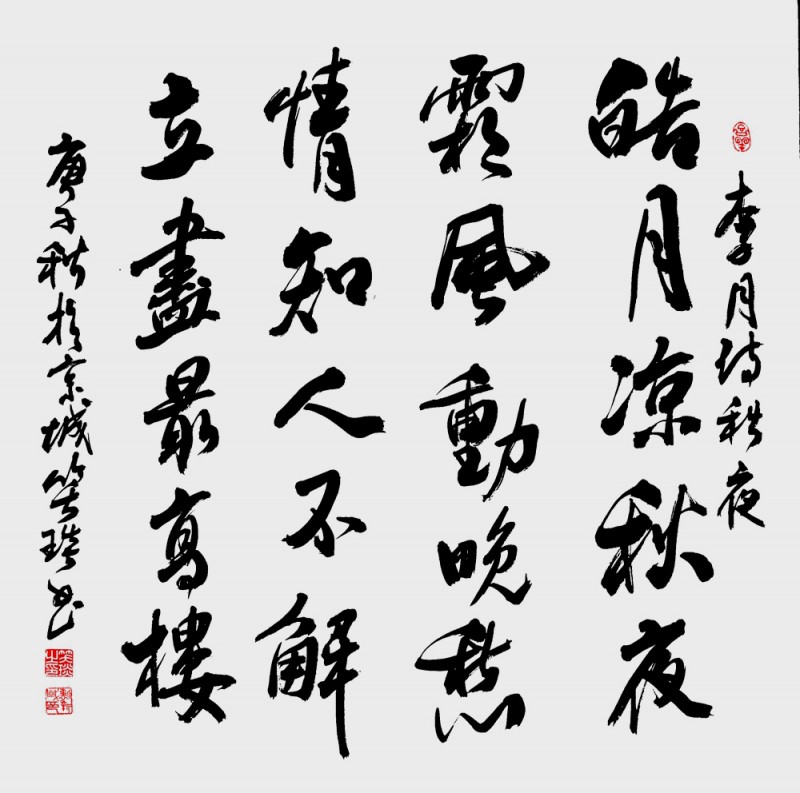 李月诗秋夜
皓月凉秋夜
霜風動晚愁
情知人不解
立盡最高樓
庚子秋於京城笑书